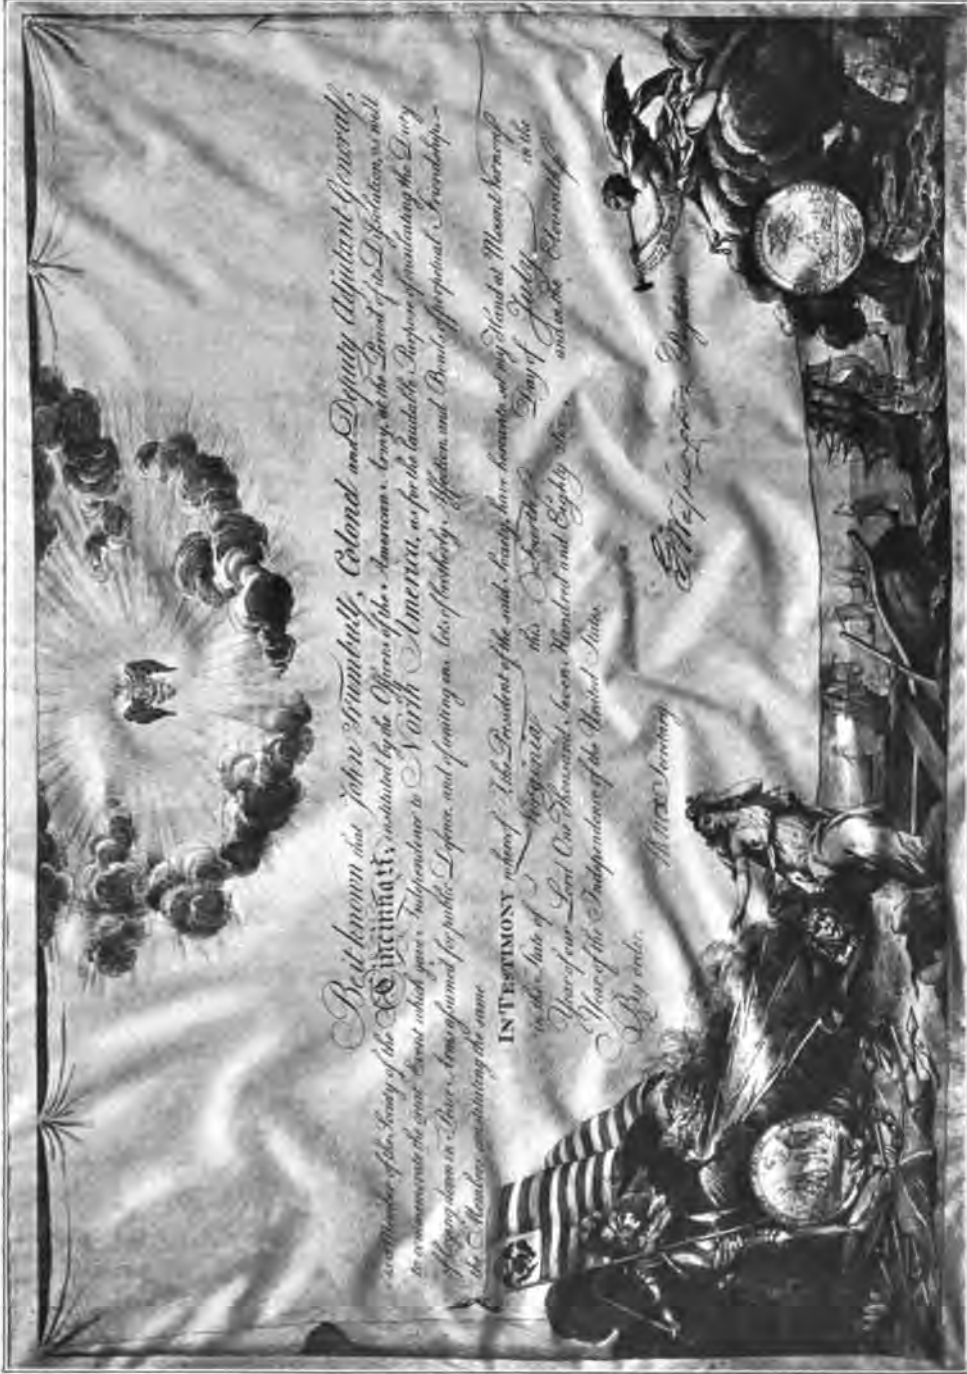 Be it known that John Trumbull, Colonel and Deputy Adjutant General,
is a Member of the Society of the Cincinnati, instituted by the Officers of the American Army, at the Period of its Dissolution, as well
to commemorate the great Event which gave Independence to North America, as for the laudable Purpose of inculcating the Duty
of laying down in Peace Arms assumed for public Defence, and of uniting in Acts of brotherly Affection, and Bonds of perpetual Friendship
the Members constituting the same
IN TESTIMONY whereof I, the President of the said Society, have hereunto set my Hand at Mount Vernon
in the State of Virginia this Fourth Day of July in the
Year of our Lord One Thousand Seven Hundred and Eighty and in the Eleventh
Year of the Independence of the United States.
By order,
G Washington President
Knox Secretary